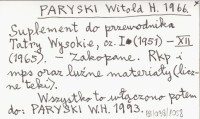 PARYSKI Witold H. 1966.
Suplement do przewodnika
Tatry Wysokie, cz. I (1951) – XII
(1965). – Zakopane. Rkp i
mps oraz luźne materiały (licz-
ne teki).
Wszystko to włączono potem
do: PARYSKI W.H. 1993.